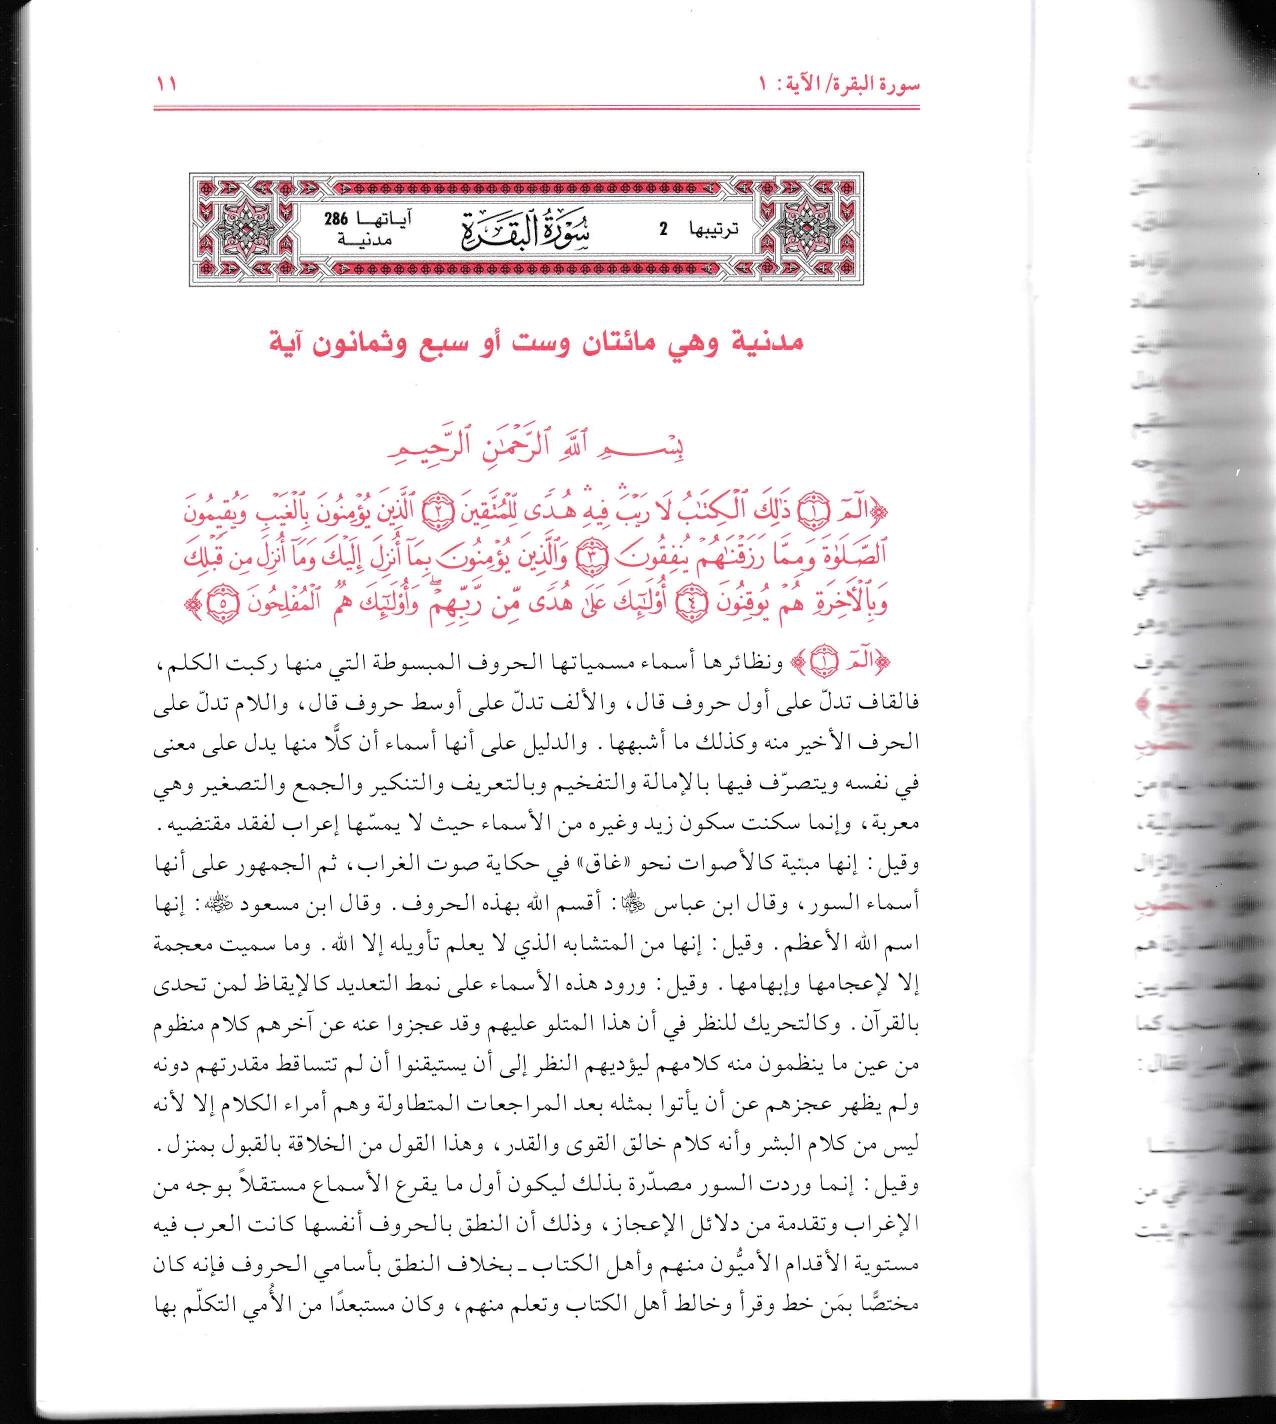 سورة البقرة/ الآية: ١
١١
ترتيبها 2
سُورَةُ البَقَرَةِ
آياتها 286
مدنية
مدنية وهي مائتان وست أو سبع وثمانون آية
بِسْمِ ٱللَّهِ ٱلرَّحْمَٰنِ ٱلرَّحِيمِ
﴿الٓمٓ ١ ذَٰلِكَ ٱلْكِتَٰبُ لَا رَيْبَۛ فِيهِۛ هُدًى لِّلْمُتَّقِينَ ٢ ٱلَّذِينَ يُؤْمِنُونَ بِٱلْغَيْبِ وَيُقِيمُونَ
ٱلصَّلَوٰةَ وَمِمَّا رَزَقْنَٰهُمْ يُنفِقُونَ ٣ وَٱلَّذِينَ يُؤْمِنُونَ بِمَآ أُنزِلَ إِلَيْكَ وَمَآ أُنزِلَ مِن قَبْلِكَ
وَبِٱلْأَخِرَةِ هُمْ يُوقِنُونَ ٤ أُوْلَٰٓئِكَ عَلَىٰ هُدًى مِّن رَّبِّهِمْۖ وَأُوْلَٰٓئِكَ هُمُ ٱلْمُفْلِحُونَ ٥﴾
﴿الٓمٓ ١﴾ ونظائرها أسماء مسمياتها الحروف المبسوطة التي منها ركبت الكلم،
فالقاف تدلّ على أول حروف قال، والألف تدلّ على أوسط حروف قال، واللام تدلّ على
الحرف الأخير منه وكذلك ما أشبهها. والدليل على أنها أسماء أن كلًّا منها يدل على معنى
في نفسه ويتصرّف فيها بالإمالة والتفخيم وبالتعريف والتنكير والجمع والتصغير وهي
معربة، وإنما سكنت سكون زيد وغيره من الأسماء حيث لا يمسّها إعراب لفقد مقتضيه.
وقيل: إنها مبنية كالأصوات نحو «غاق» في حكاية صوت الغراب، ثم الجمهور على أنها
أسماء السور، وقال ابن عباس ﵄: أقسم الله بهذه الحروف. وقال ابن مسعود ﵁: إنها
اسم الله الأعظم. وقيل: إنها من المتشابه الذي لا يعلم تأويله إلا الله. وما سميت معجمة
إلا لإعجامها وإبهامها. وقيل: ورود هذه الأسماء على نمط التعديد كالإيقاظ لمن تحدى
بالقرآن. وكالتحريك للنظر في أن هذا المتلو عليهم وقد عجزوا عنه عن آخرهم كلام منظوم
من عين ما ينظمون منه كلامهم ليؤديهم النظر إلى أن يستيقنوا أن لم تتساقط مقدرتهم دونه
ولم يظهر عجزهم عن أن يأتوا بمثله بعد المراجعات المتطاولة وهم أمراء الكلام إلا لأنه
ليس من كلام البشر وأنه كلام خالق القوى والقدر، وهذا القول من الخلاقة بالقبول بمنزل.
وقيل: إنما وردت السور مصدّرة بذلك ليكون أول ما يقرع الأسماع مستقلاً بوجه من
الإغراب وتقدمة من دلائل الإعجاز، وذلك أن النطق بالحروف أنفسها كانت العرب فيه
مستوية الأقدام الأميُّون منهم وأهل الكتاب ـ بخلاف النطق بأسامي الحروف فإنه كان
مختصًّا بمَن خط وقرأ وخالط أهل الكتاب وتعلم منهم، وكان مستبعدًا من الأُمي التكلّم بها